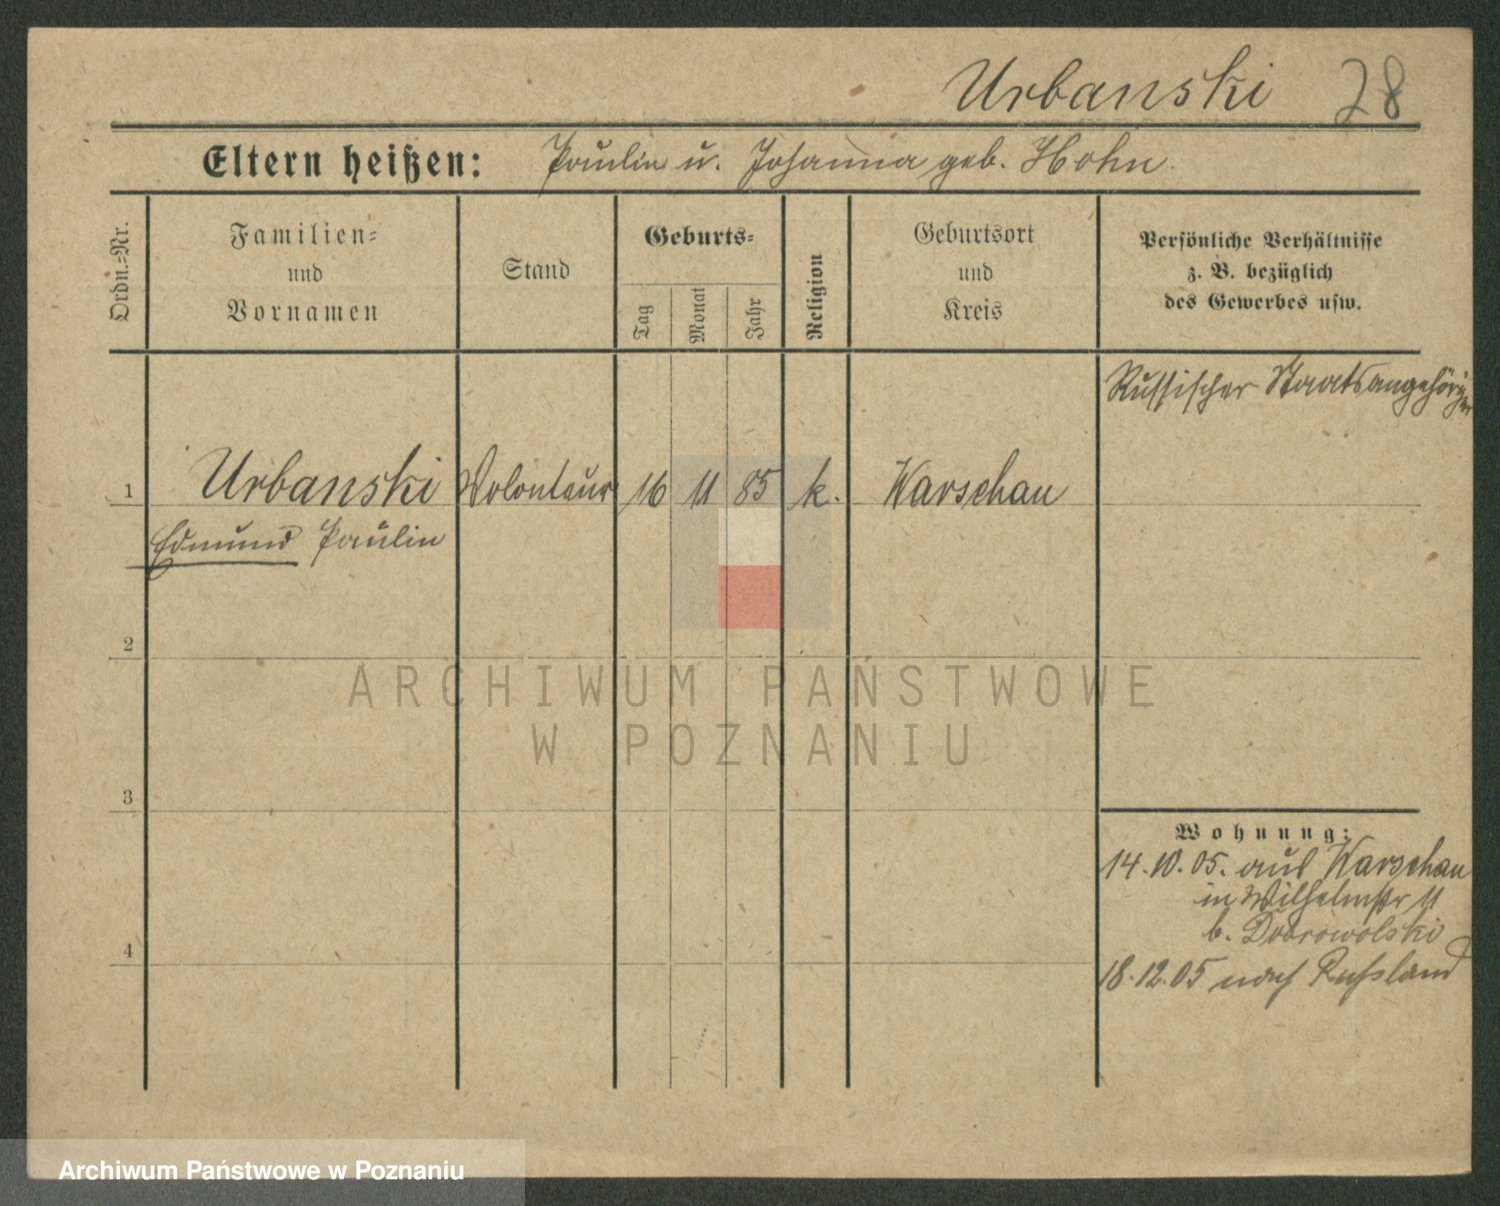 Urbanski 28
Eltern heißen: Paulin u. Johanna geb. Hohn.
Ordn.-Nr.
Familien-
und
Vornamen
Stand
Geburts-
Tag
Monat
Jahr
Religion
Geburtsort
und
Kreis
Persönliche Verhältnisse
z. B. bezüglich
des Gewerbes usw.
Russischer Staatsangehöriger
1 Urbanski Volonteur 16 11 85 k. Warschau
Edmund Paulin
2
ARCHIWUM PAŃSTWOWE
W POZNANIU
3
Wohnung:
14.10.05. aus Warschau
in Wilhelmstr 11
b. Dobrowolski
4
18.12.05 nach Russland
Archiwum Państwowe w Poznaniu